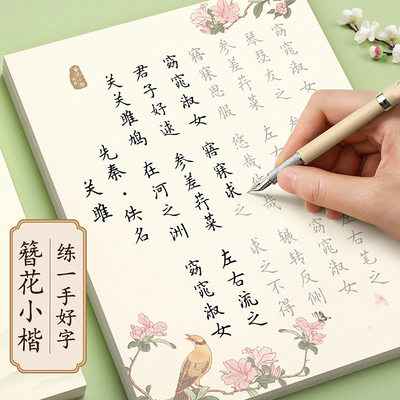 关关雎鸠
君子好逑
窈窕淑女
寤寐思服
参差荇菜
琴瑟友之
窈窕淑女
关雎
先秦·佚名
在河之洲
参差荇菜
寤寐求之
悠哉悠哉
左右
窈窕淑女
左右流之
求之不得
辗转反侧
左右芼之
簪花小楷
练一手好字